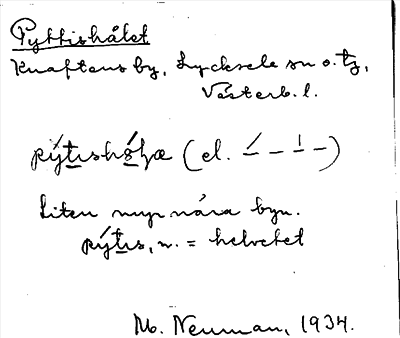 Pyttishålet
Knaftens by, Lycksele sn o. tg,
Västerb. l.
pýtıshó̱ḷæ (el. ⸍ – – ⸌ –)
Liten myr nära byn.
pýtıs, n. = helvetet
M. Neuman, 1934.